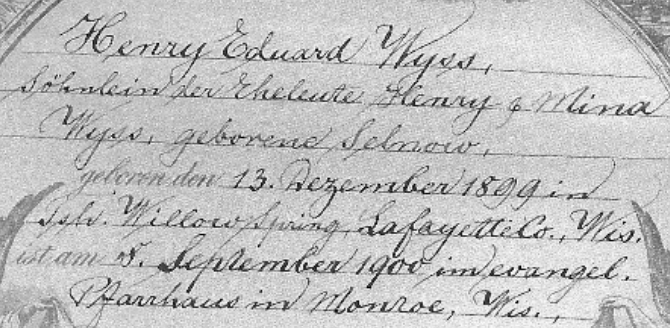 Henry Eduard Wyss,
Söhnlein der Eheleute Henry & Mina
Wyss, geborene Selnow,
geboren den 13. Dezember 1899 in
Tsh. Willow Spring, Lafayette Co., Wis.
ist am 8. September 1900 im evangel.
Pfarrhaus in Monroe, Wis.,